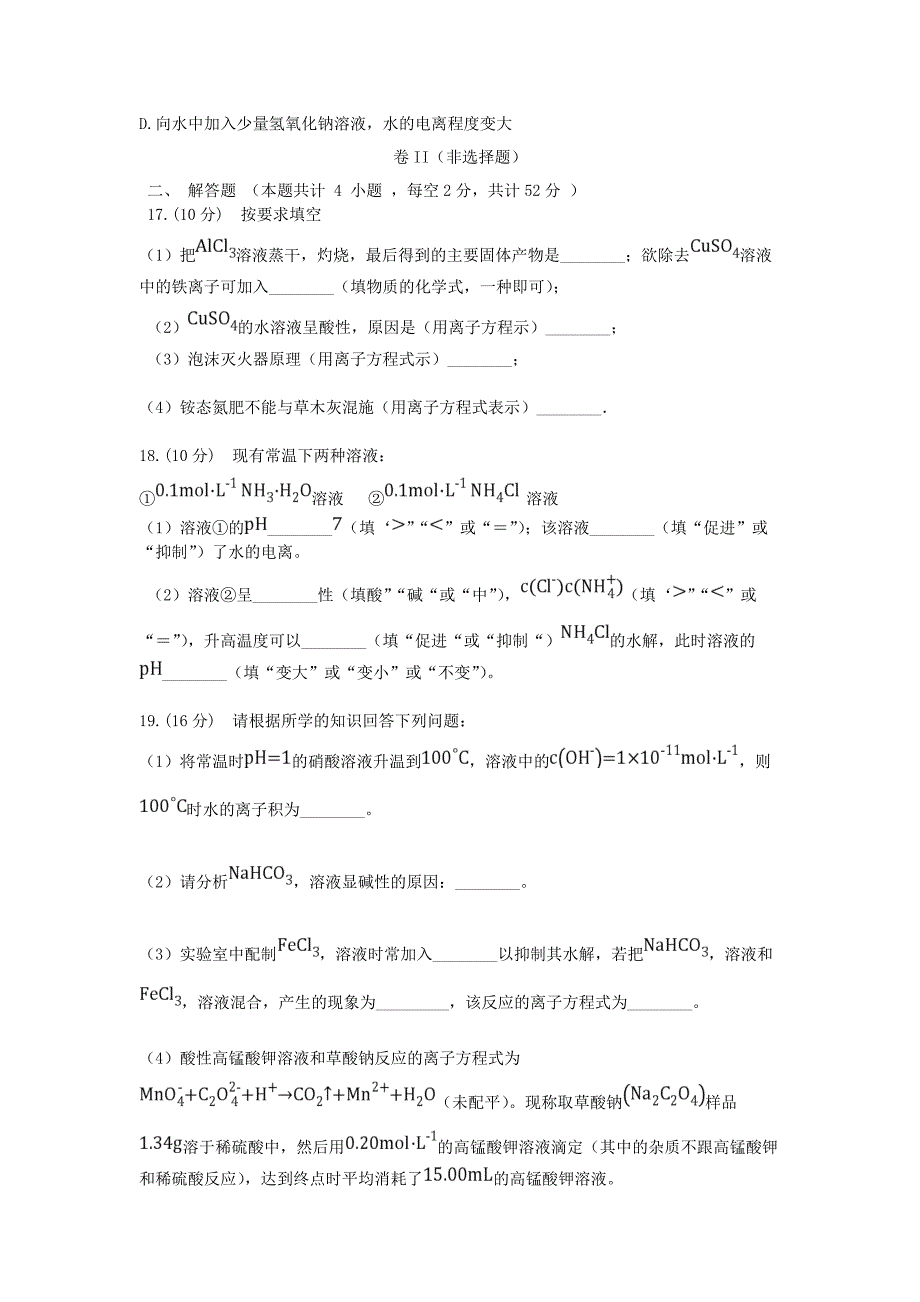 D.向水中加入少量氢氧化钠溶液，水的电离程度变大
卷 II（非选择题）
二、 解答题 （本题共计 4 小题 ，每空 2 分，共计 52 分 ）
17.(10 分) 按要求填空
（1）把AlCl₃溶液蒸干，灼烧，最后得到的主要固体产物是________；欲除去CuSO₄溶液
中的铁离子可加入________（填物质的化学式，一种即可）；
（2）CuSO₄的水溶液呈酸性，原因是（用离子方程示）________；
（3）泡沫灭火器原理（用离子方程式示）________；
（4）铵态氮肥不能与草木灰混施（用离子方程式表示）________．
18.(10 分) 现有常温下两种溶液：
①0.1mol·L⁻¹ NH₃·H₂O溶液 ②0.1mol·L⁻¹ NH₄Cl 溶液
（1）溶液①的pH________7（填‘>”“<”或“＝”）；该溶液________（填“促进”或
“抑制”）了水的电离。
（2）溶液②呈________性（填酸”“碱“或“中”），c(Cl⁻)c(NH₄⁺)（填‘>”“<”或
“＝”），升高温度可以________（填“促进“或“抑制“）NH₄Cl的水解，此时溶液的
pH________（填“变大”或“变小”或“不变”）。
19.(16 分) 请根据所学的知识回答下列问题：
（1）将常温时pH=1的硝酸溶液升温到100℃，溶液中的c(OH⁻)=1×10⁻¹¹mol·L⁻¹，则
100℃时水的离子积为________。
（2）请分析NaHCO₃，溶液显碱性的原因：________。
（3）实验室中配制FeCl₃，溶液时常加入________以抑制其水解，若把NaHCO₃，溶液和
FeCl₃，溶液混合，产生的现象为_________，该反应的离子方程式为________。
（4）酸性高锰酸钾溶液和草酸钠反应的离子方程式为
MnO₄⁻+C₂O₄²⁻+H⁺→CO₂↑+Mn²⁺+H₂O（未配平）。现称取草酸钠(Na₂C₂O₄)样品
1.34g溶于稀硫酸中，然后用0.20mol·L⁻¹的高锰酸钾溶液滴定（其中的杂质不跟高锰酸钾
和稀硫酸反应），达到终点时平均消耗了15.00mL的高锰酸钾溶液。